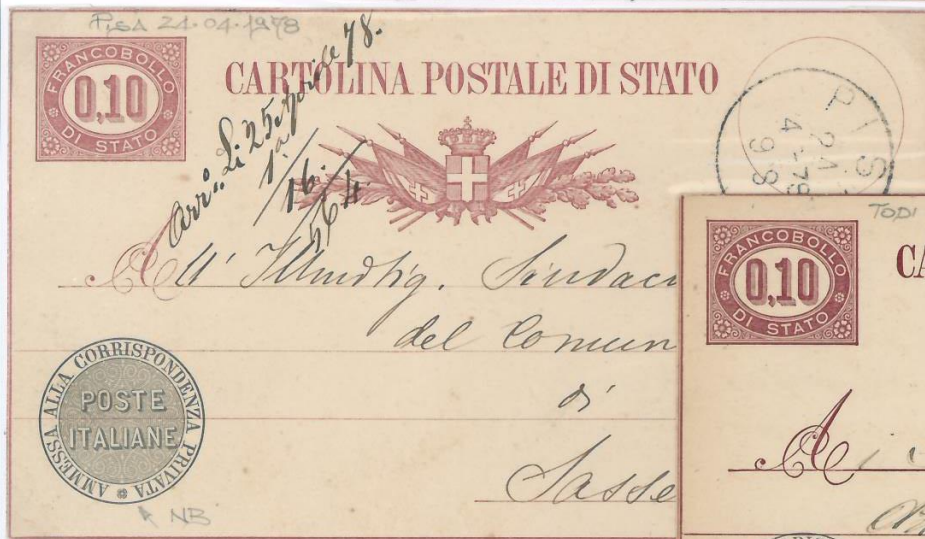 PISA 21-04-1978
FRANCOBOLLO
0,10
DI STATO
CARTOLINA POSTALE DI STATO
arrº. Li 25 Aprile 78.
1ª
16.
4.
PIS
21
4-78
9 S
All' Illmo Sig. Sindaco
del Comun
di
Sasse
AMMESSA ALLA CORRISPONDENZA PRIVATA
POSTE
ITALIANE
NB
TODI
FRANCOBOLLO
0,10
DI STATO
CA
A